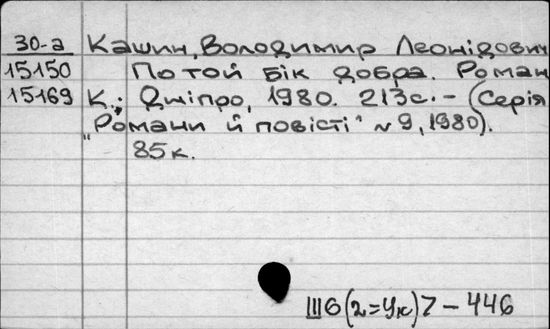 30-а Кашин, Володимир Леонідович
15150 По той бік добра. Роман
15169 К.; Дніпро, 1980. 213с. - (Серія
"Романи й повісті" №9, 1980).
85к.
Ш6(2=Ук)7-446